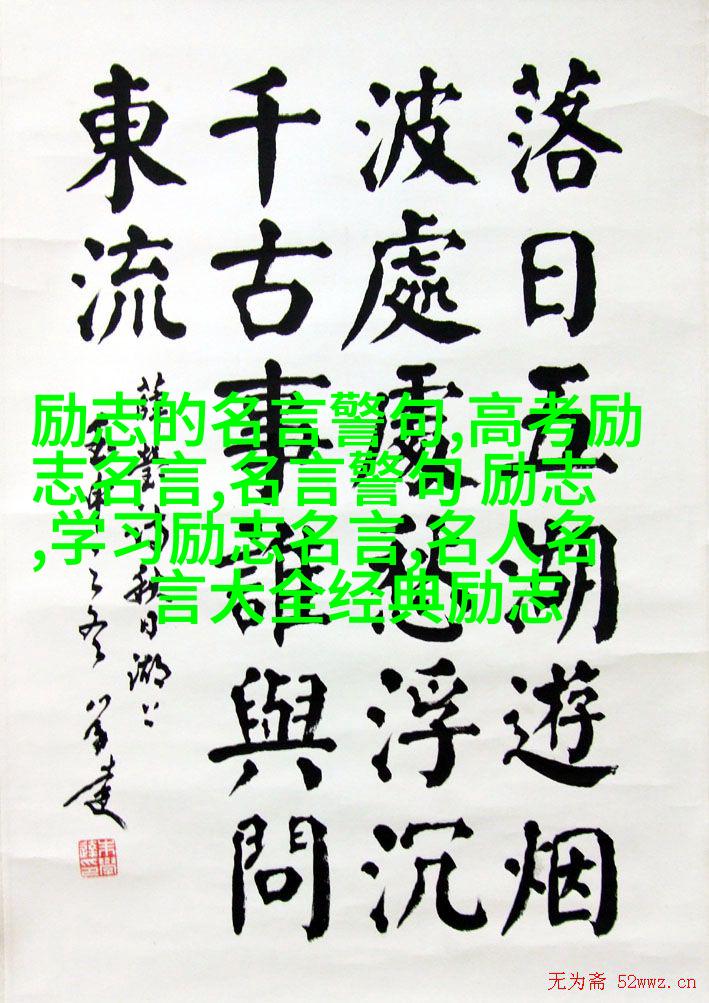 落日五湖遊烟
波處處愁浮沉
千古事誰與問
東流
薛瑩詩秋日湖上
之冬
励志的名言警句,高考励
志名言,名言警句 励志
,学习励志名言,名人名
言大全经典励志
无为斋 52wwz.cn